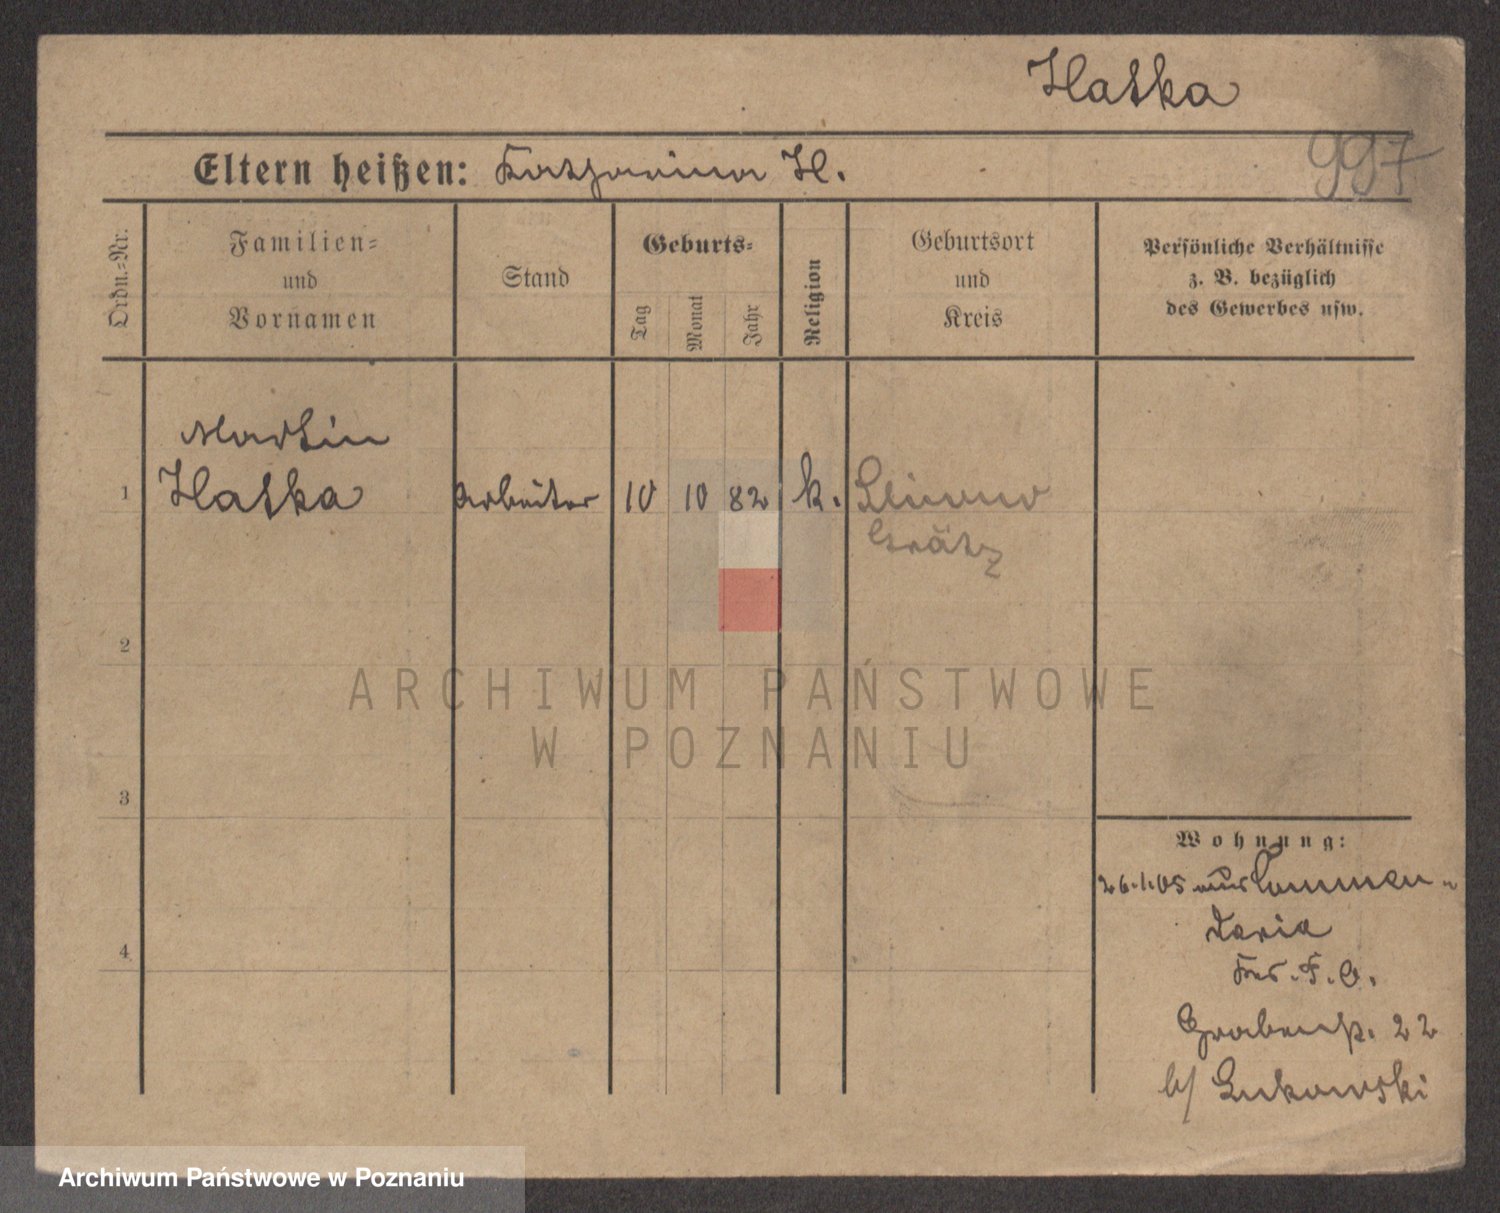 Hatka
997
Eltern heißen: Katharina H.
Ordn.-Nr.
Familien-
und
Vornamen
Stand
Geburts-
Tag
Monat
Jahr
Religion
Geburtsort
und
Kreis
Persönliche Verhältnisse
z. B. bezüglich
des Gewerbes usw.
Martin
1 Hatka Arbeiter 10 10 82 k.
Grätz
2
ARCHIWUM PAŃSTWOWE
W POZNANIU
3
Wohnung:
26.1.05 aus Commen-
daria
Krs. P. O.
4
Grabenstr. 22
b/ Lukowski
Archiwum Państwowe w Poznaniu